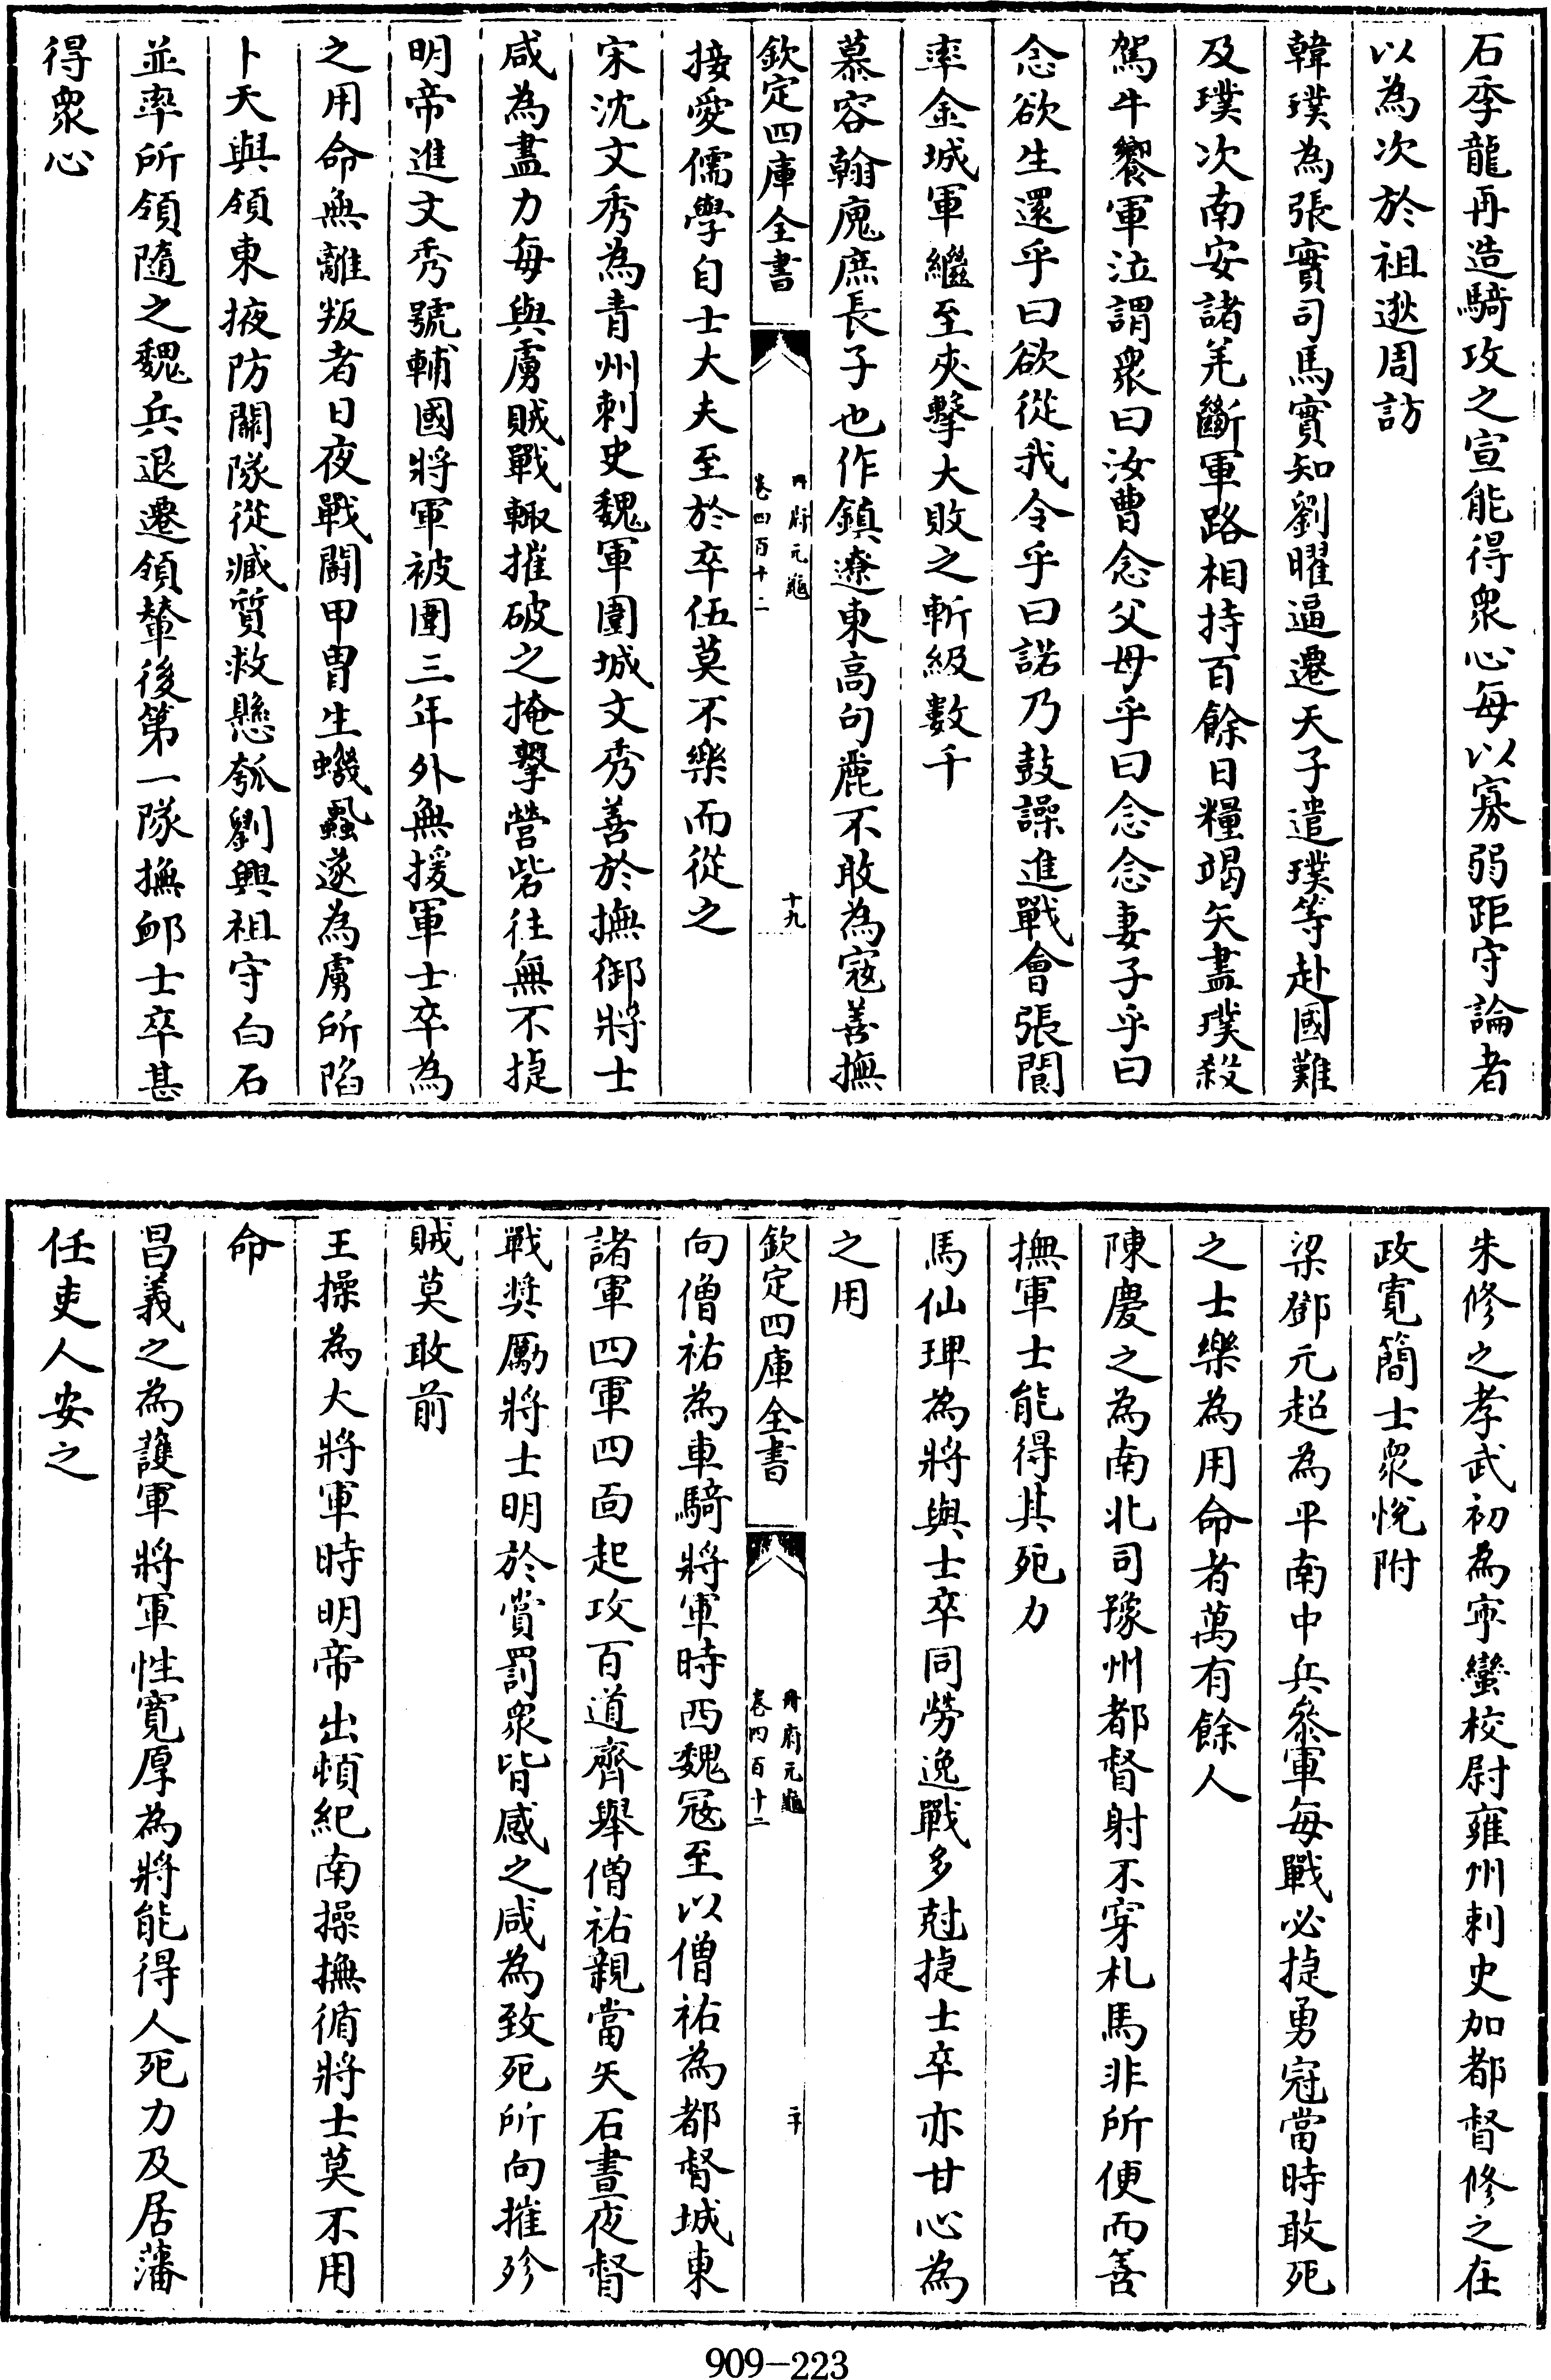 石季龍再造騎攻之宣能得衆心每以寡弱距守論者
以為次於祖逖周訪
韓璞為張寔司馬寔知劉曜逼遷天子遣璞等赴國難
及璞次南安諸羌斷軍路相持百餘日糧竭矢盡璞殺
駕牛饗軍泣謂衆曰汝曹念父母乎曰念念妻子乎曰
念欲生還乎曰欲從我令乎曰諾乃鼓譟進戰會張閬
率金城軍繼至夾擊大敗之斬級數千
慕容翰廆庶長子也作鎮遼東高句麗不敢為寇善撫
欽定四庫全書
冊府元龜
卷四百十二
十九
接愛儒學自士大夫至於卒伍莫不樂而從之
宋沈文秀為青州刺史魏軍圍城文秀善於撫御將士
咸為盡力每與虜賊戰輒摧破之掩擊營砦往無不捷
明帝進文秀號輔國將軍被圍三年外無援軍士卒為
之用命無離叛者日夜戰鬬甲胄生蟣蝨遂為虜所陷
卜天與領東掖防關隊從臧質救懸瓠劉興祖守白石
並率所領隨之魏兵退遷領輦後第一隊撫邮士卒甚
得衆心
朱修之孝武初為寜蠻校尉雍州刺史加都督修之在
政寛簡士衆悅附
梁鄧元超為平南中兵參軍每戰必捷勇冠當時敢死
之士樂為用命者萬有餘人
陳慶之為南北司豫州都督射不穿札馬非所便而善
撫軍士能得其死力
馬仙琕為將與士卒同勞逸戰多尅捷士卒亦甘心為
之用
欽定四庫全書
冊府元龜
卷四百十二
二十
向僧祐為車騎將軍時西魏寇至以僧祐為都督城東
諸軍四軍四面起攻百道齊舉僧祐親當矢石晝夜督
戰奨厲將士明於賞罰衆皆感之咸為致死所向摧殄
賊莫敢前
王操為大將軍時明帝出頓紀南操撫循將士莫不用
命
昌義之為護軍將軍性寛厚為將能得人死力及居藩
任吏人安之
909-223